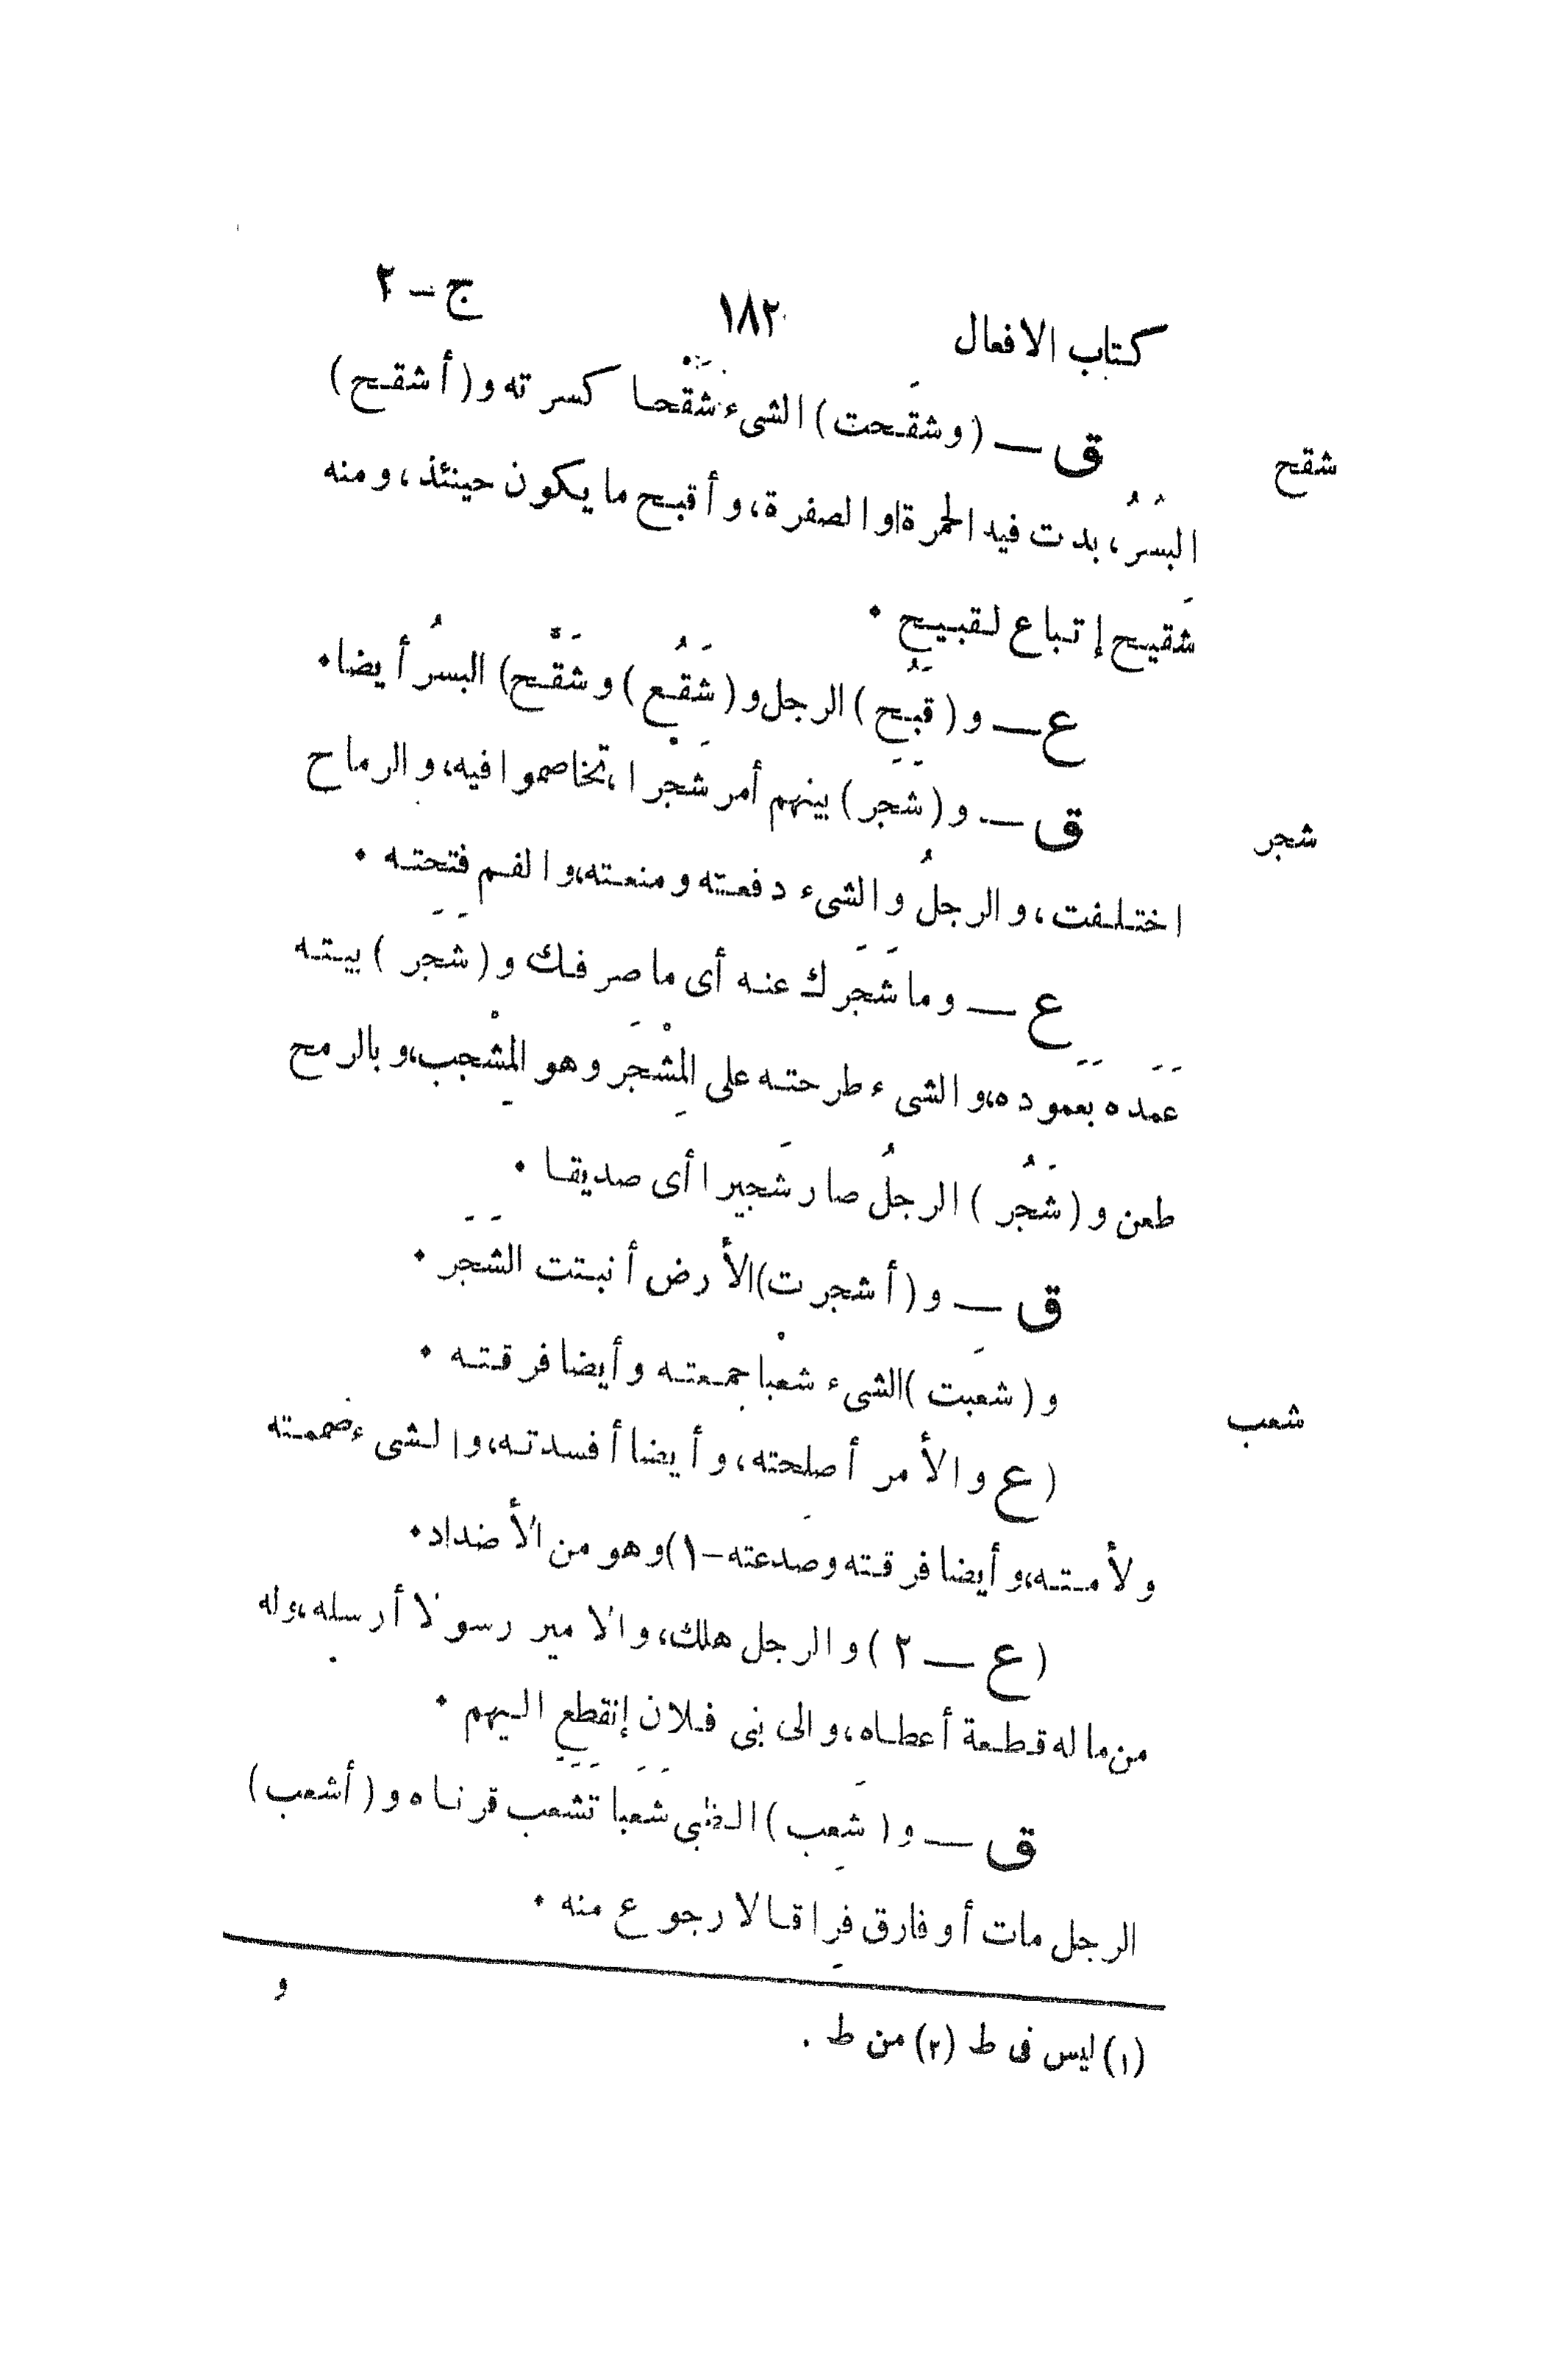 كتاب الافعال ١٨٢ ج – ٢
شقح
ق – (وشقَحت) الشىء شَقْحا كسرته و (أشقح)
البُسْرُ، بدت فيه الحمرة او الصفرة، وأقبح ما يكون حينئذ، ومنه
شَقيح إتباع لقبيح •
ع – و (قَبُح) الرجل و (شَقُع) و شَقَّح) البسرُ أيضا •
شجر
ق – و (شجَر) بينهم أمر شَجْرا، تخاصموا فيه، والرماح
اختلفت، والرجلُ والشىء دفعته ومنعته، والفم فتحته •
ع – وما شَجَرك عنه أى ما صرفك و (شَجَر) بيته
عَمَده بعَموده، والشىء طرحته على المِشْجَر وهو المِشْجب، وبالرمح
طعن و (شَجُر) الرجلُ صار شَجيرا أى صديقا •
ق – و (أشجرت) الأرض أنبتت الشَجَر •
شعب
و (شعَبت) الشىء شعْبا جمعته وأيضا فرقته •
(ع والأمر أصلحته، وأيضا أفسدته، والشىء ضممته
ولأمته، وأيضا فرقته وصَدعته – ١) وهو من الأضداد •
(ع – ٢) والرجل هلك، والامير رسولا أرسله، وله
من ماله قطعة أعطاه، والى بنى فلان إنقطع اليهم •
ق – و (شَعِب) الظبى شَعَبا تَشَعَّب قرناه و (أشعب)
الرجل مات أو فارق فِراقا لا رجوع منه •
و
(١) ليس فى ط (٢) من ط .